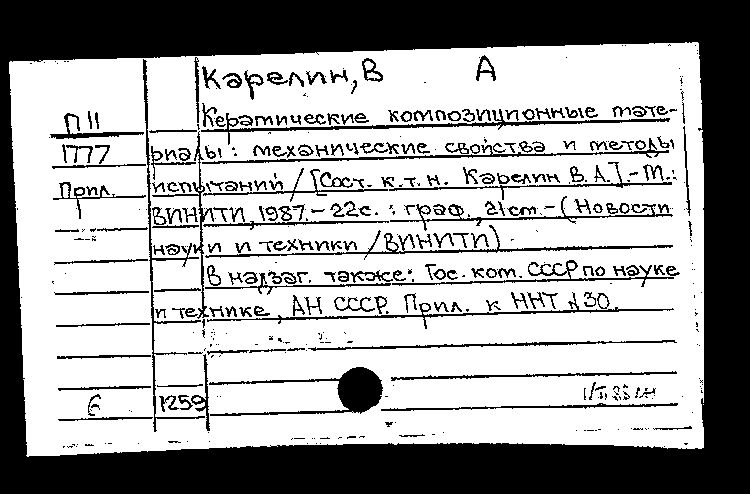 Карелин, В А
П II
Керамические композиционные мате-
1777
риалы: механические свойства и методы
Прил.
испытаний / [Сост. к.т.н. Карелин В.А.]. - М.:
1
ВИНИТИ, 1987. - 22с. : граф., 21 cm. - (Новости
науки и техники / ВИНИТИ)
В надзаг. также: Гос. ком. СССР по науке
и технике, АН СССР. Прил. к ННТ №30.
6 1259